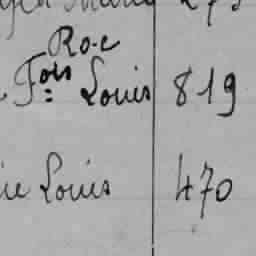 Roc
Fois Louis 819
Louis 470